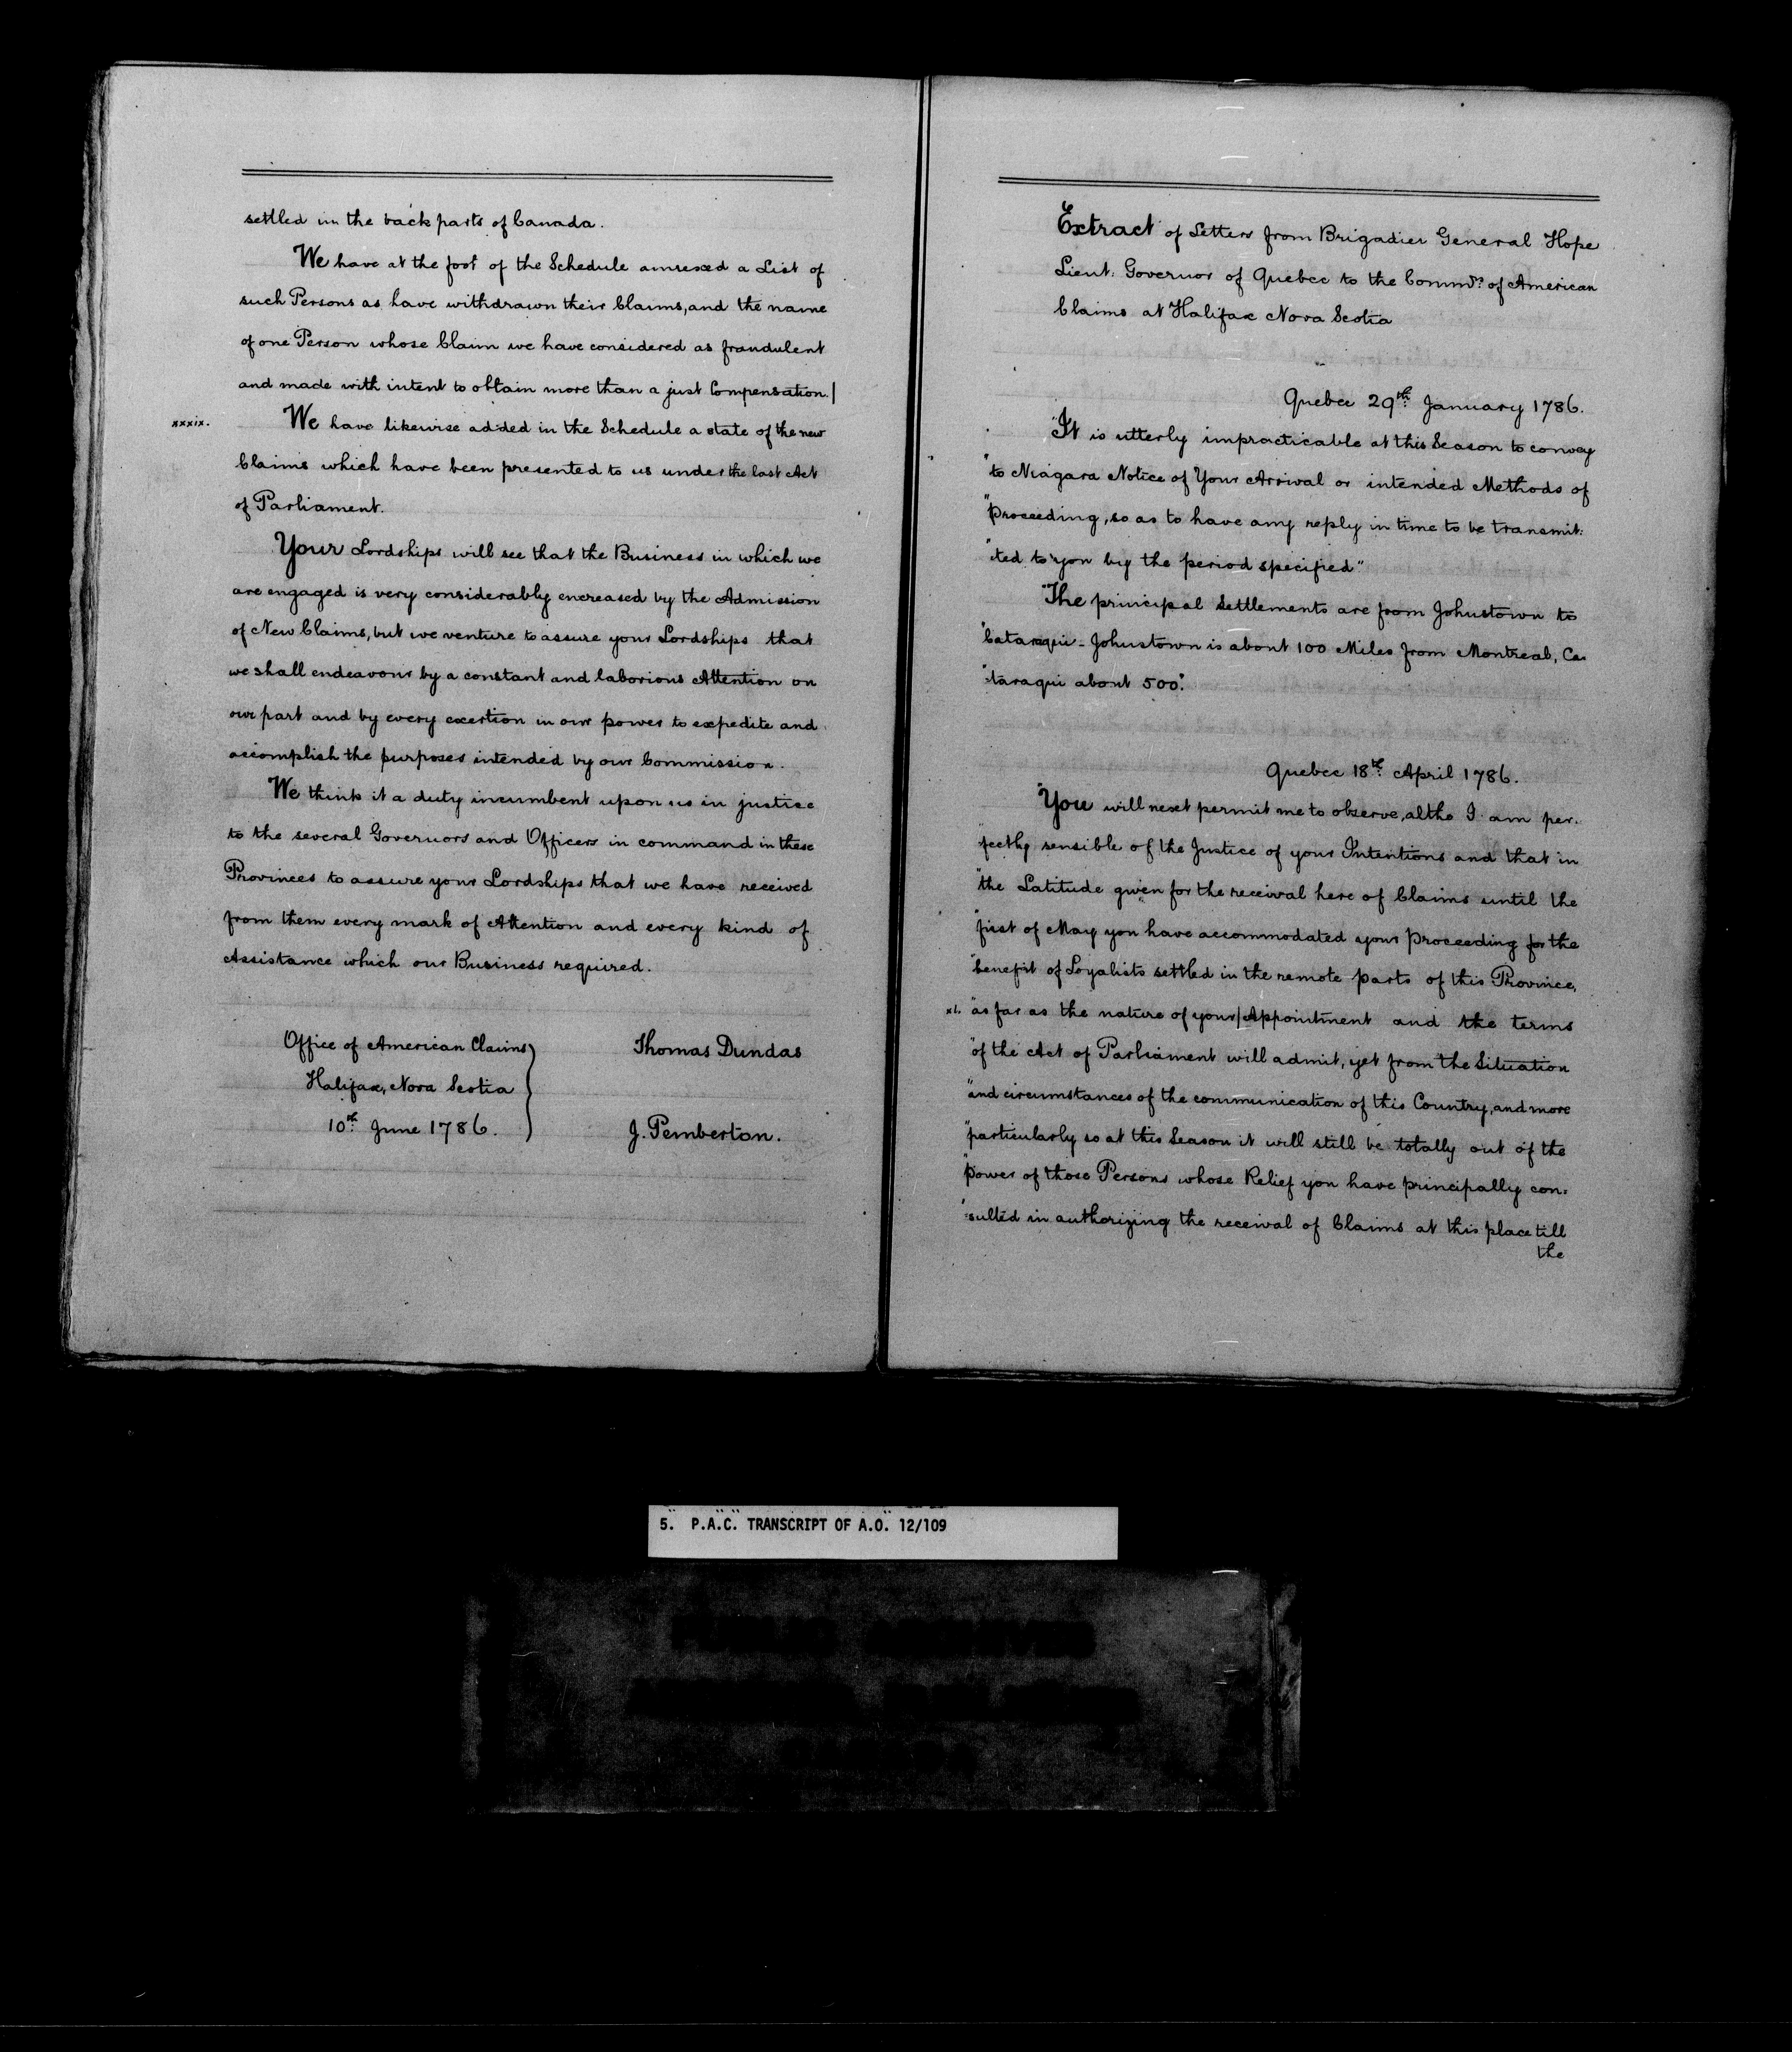 settled in the back parts of Canada.
We have at the foot of the Schedule annexed a List of
such Persons as have withdrawn their Claims, and the name
of one Person whose Claim we have considered as fraudulent
and made with intent to obtain more than a just Compensation.|
xxxix. We have likewise added in the Schedule a state of the new
Claims which have been presented to us under the last Act
of Parliament.
Your Lordships will see that the Business in which we
are engaged is very considerably encreased by the Admission
of New Claims, but we venture to assure your Lordships that
we shall endeavour by a constant and laborious Attention on
our part and by every exertion in our power to expedite and
accomplish the purposes intended by our Commission.
We think it a duty incumbent upon us in justice
to the several Governors and Officers in command in these
Provinces to assure your Lordships that we have received
from them every mark of Attention and every kind of
Assistance which our Business required.
Office of American Claims
Halifax, Nova Scotia
10th June 1786.
Thomas Dundas
J. Pemberton.
Extract of Letters from Brigadier General Hope
Lieut: Governor of Quebec to the Commrs. of American
Claims at Halifax Nova Scotia
Quebec 29th. January 1786.
"It is utterly impracticable at this Season to convey
"to Niagara Notice of Your Arrival or intended Methods of
"Proceeding, so as to have any reply in time to be transmit:
"ted to you by the period specified"
"The principal Settlements are from Johnstown to
"Cataraqui - Johnstown is about 100 Miles from Montreal, Ca:
"taraqui about 500".
Quebec 18th. April 1786.
"You will next permit me to observe, altho I am per:
"fectly sensible of the Justice of your Intentions and that in
"the Latitude given for the receival here of Claims until the
"first of May you have accommodated your Proceeding for the
"benefit of Loyalists settled in the remote parts of this Province,
xl. "as far as the nature of your|Appointment and the terms
"of the Act of Parliament will admit, yet from the Situation
"and circumstances of the communication of this Country, and more
"particularly so at this Season it will still be totally out of the
"power of those Persons whose Relief you have principally con:
"sulted in authorizing the receival of Claims at this place till
the
5. P.A.C. TRANSCRIPT OF A.O. 12/109